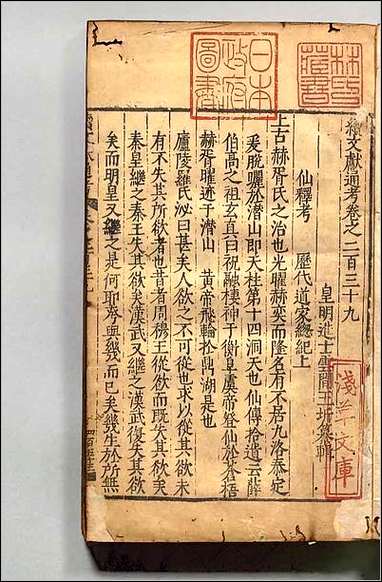 日本
政府
圖書
林氏
藏書
淺草文庫
續文獻通考卷之二百三十九
皇明進士雲間王圻纂輯
仙釋考 歷代道家總紀上
上古赫胥氏之治也光曜赫奕而隆名有不居九洛泰定
爰脫驪於潛山即天柱第十四洞天也仙傳拾遺云薛
伯高之祖玄真曰祝融棲神于衡阜虞帝登仙於蒼梧
赫胥曜迹于濳山 黃帝飛輪於鼎湖是也
廬陵羅氏泌曰甚矣人欲之不可從也求以從其欲未
有不失其所欲者也昔者周穆王從欲而既失其欲矣
秦皇繼之秦王失其欲矣漢武又繼之漢武復失其欲
矣而明皇又繼之是何耶齊與幾而已矣幾生於所無